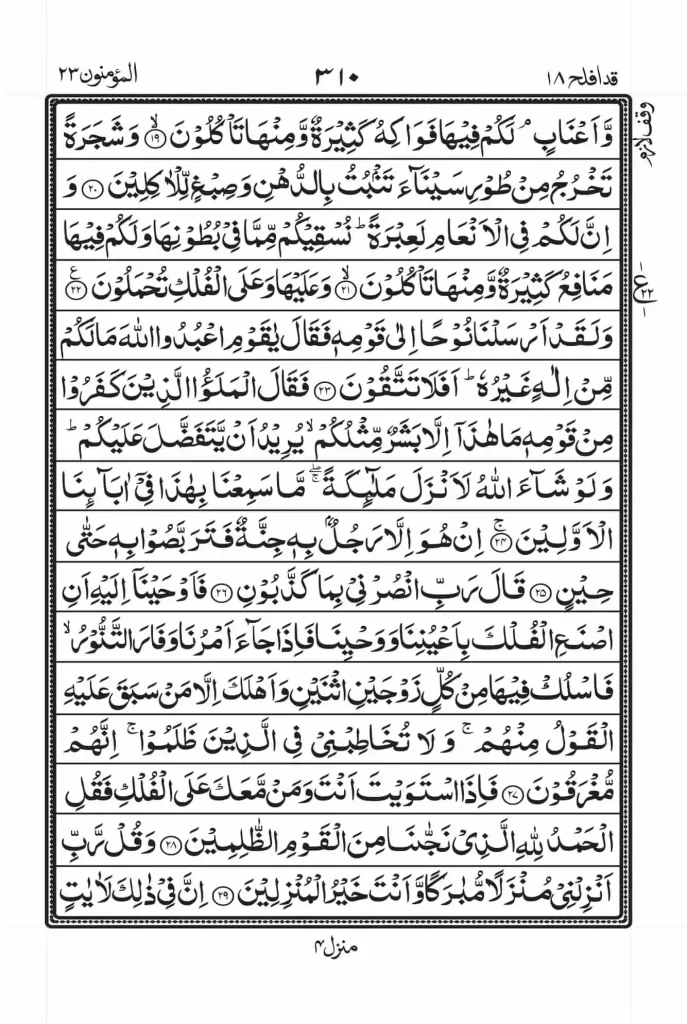 قدافلح ۱۸
۳۱۰
المؤمنون ۲۳
وقف لازم
وَّاَعْنَابٍ ۘ لَكُمْ فِيْهَا فَوَاكِهُ كَثِيْرَةٌ وَّمِنْهَا تَاْكُلُوْنَ ۙ﴿۱۹﴾ وَشَجَرَةً
تَخْرُجُ مِنْ طُوْرِ سَيْنَآءَ تَنْۢبُتُ بِالدُّهْنِ وَصِبْغٍ لِّلْاٰكِلِيْنَ ﴿۲۰﴾ وَ
اِنَّ لَكُمْ فِي الْاَنْعَامِ لَعِبْرَةً ؕ نُسْقِيْكُمْ مِّمَّا فِيْ بُطُوْنِهَا وَلَكُمْ فِيْهَا
مَنَافِعُ كَثِيْرَةٌ وَّمِنْهَا تَاْكُلُوْنَ ۙ﴿۲۱﴾ وَعَلَيْهَا وَعَلَى الْفُلْكِ تُحْمَلُوْنَ ﴿۲۲﴾ع
ع ۲۲
وَلَقَدْ اَرْسَلْنَا نُوْحًا اِلٰى قَوْمِهٖ فَقَالَ يٰقَوْمِ اعْبُدُوا اللّٰهَ مَا لَكُمْ
مِّنْ اِلٰهٍ غَيْرُهٗ ؕ اَفَلَا تَتَّقُوْنَ ﴿۲۳﴾ فَقَالَ الْمَلَؤُا الَّذِيْنَ كَفَرُوْا
مِنْ قَوْمِهٖ مَا هٰذَآ اِلَّا بَشَرٌ مِّثْلُكُمْ ۙ يُرِيْدُ اَنْ يَّتَفَضَّلَ عَلَيْكُمْ ؕ
وَلَوْ شَآءَ اللّٰهُ لَاَنْزَلَ مَلٰٓئِكَةً ۖۚ مَّا سَمِعْنَا بِهٰذَا فِيْٓ اٰبَآئِنَا
الْاَوَّلِيْنَ ۚ﴿۲۴﴾ اِنْ هُوَ اِلَّا رَجُلٌۢ بِهٖ جِنَّةٌ فَتَرَبَّصُوْا بِهٖ حَتّٰى
حِيْنٍ ﴿۲۵﴾ قَالَ رَبِّ انْصُرْنِيْ بِمَا كَذَّبُوْنِ ﴿۲۶﴾ فَاَوْحَيْنَآ اِلَيْهِ اَنِ
اصْنَعِ الْفُلْكَ بِاَعْيُنِنَا وَوَحْيِنَا فَاِذَا جَآءَ اَمْرُنَا وَفَارَ التَّنُّوْرُ ۙ
فَاسْلُكْ فِيْهَا مِنْ كُلٍّ زَوْجَيْنِ اثْنَيْنِ وَاَهْلَكَ اِلَّا مَنْ سَبَقَ عَلَيْهِ
الْقَوْلُ مِنْهُمْ ۚ وَلَا تُخَاطِبْنِيْ فِي الَّذِيْنَ ظَلَمُوْا ۚ اِنَّهُمْ
مُّغْرَقُوْنَ ﴿۲۷﴾ فَاِذَا اسْتَوَيْتَ اَنْتَ وَمَنْ مَّعَكَ عَلَى الْفُلْكِ فَقُلِ
الْحَمْدُ لِلّٰهِ الَّذِيْ نَجّٰىنَا مِنَ الْقَوْمِ الظّٰلِمِيْنَ ﴿۲۸﴾ وَقُلْ رَّبِّ
اَنْزِلْنِيْ مُنْزَلًا مُّبٰرَكًا وَّاَنْتَ خَيْرُ الْمُنْزِلِيْنَ ﴿۲۹﴾ اِنَّ فِيْ ذٰلِكَ لَاٰيٰتٍ
منزل ۴